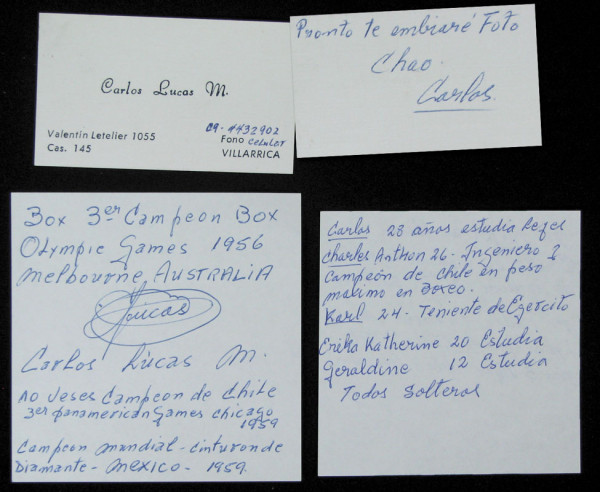 Carlos Lucas M.
Valentin Letelier 1055
Cas. 145
09-4432902
Fono celular
VILLARRICA
Pronto te embiaré Foto
Chao.
Carlos.
Box 3er Campeon Box
Olympic Games 1956
Melbourne, AUSTRALIA
Lucas
Carlos Lucas M.
Campeon de Chile
3er panamerican Games Chicago
1959
Campeon mundial - cinturon de
Diamante - Mexico - 1959.
Carlos 28 años estudia
Charles Anthon 26 - Ingeniero
Campeón de Chile en peso
maximo en Boxeo.
Karl 24 - Teniente de Ejercito
Erika Katherine 20 Estudia
Geraldine 12 Estudia
Todos Solteros